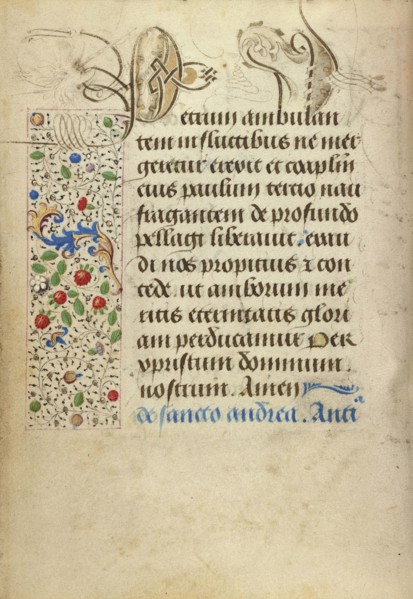 Petrum ambulan
tem in fluctibus ne mer
geretur erexit et coaplm̄
eius paulum tercio nau
fragantem de profundo
pellagi liberauit. exau
di nos propicius ⁊ con
cede. ut amborum me
ritis eternitatis glori
am perducamur Per
xpristum dominum.
nostrum. Amen
de sancto andrea. Antiᵃ